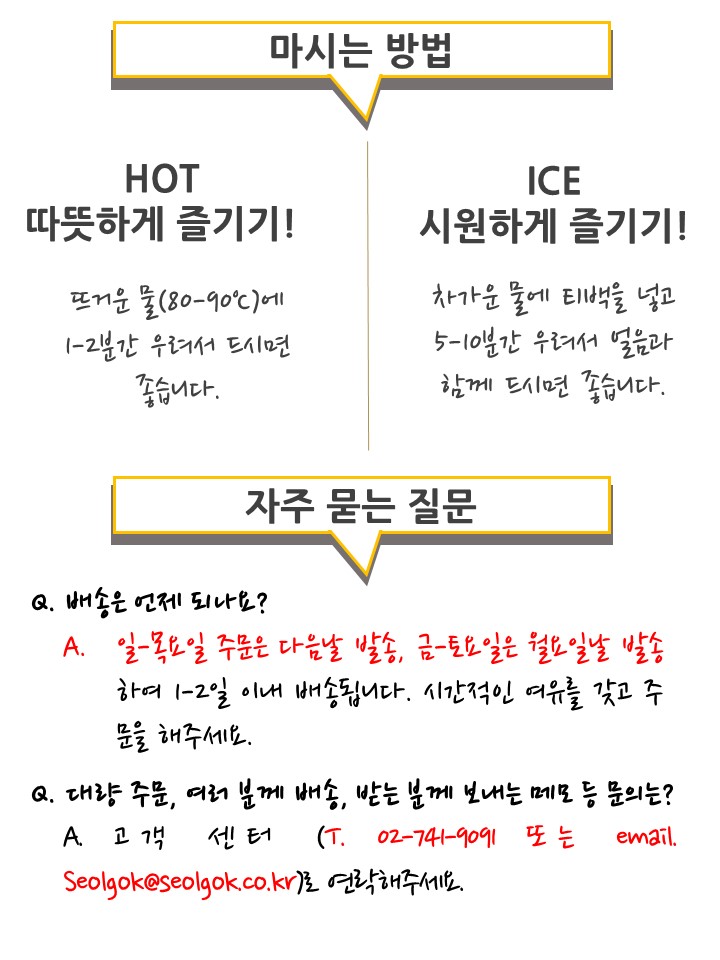 마시는 방법
HOT
따뜻하게 즐기기!
뜨거운 물(80-90℃)에
1-2분간 우려서 드시면
좋습니다.
ICE
시원하게 즐기기!
차가운 물에 티백을 넣고
5-10분간 우려서 얼음과
함께 드시면 좋습니다.
자주 묻는 질문
Q. 배송은 언제 되나요?
A. 일-목요일 주문은 다음날 발송, 금-토요일은 월요일날 발송
하여 1-2일 이내 배송됩니다. 시간적인 여유를 갖고 주
문을 해주세요.
Q. 대량 주문, 여러 분께 배송, 받는 분께 보내는 메모 등 문의는?
A. 고객 센터 (T. 02-741-9091 또는 email.
Seolgok@seolgok.co.kr)로 연락해주세요.